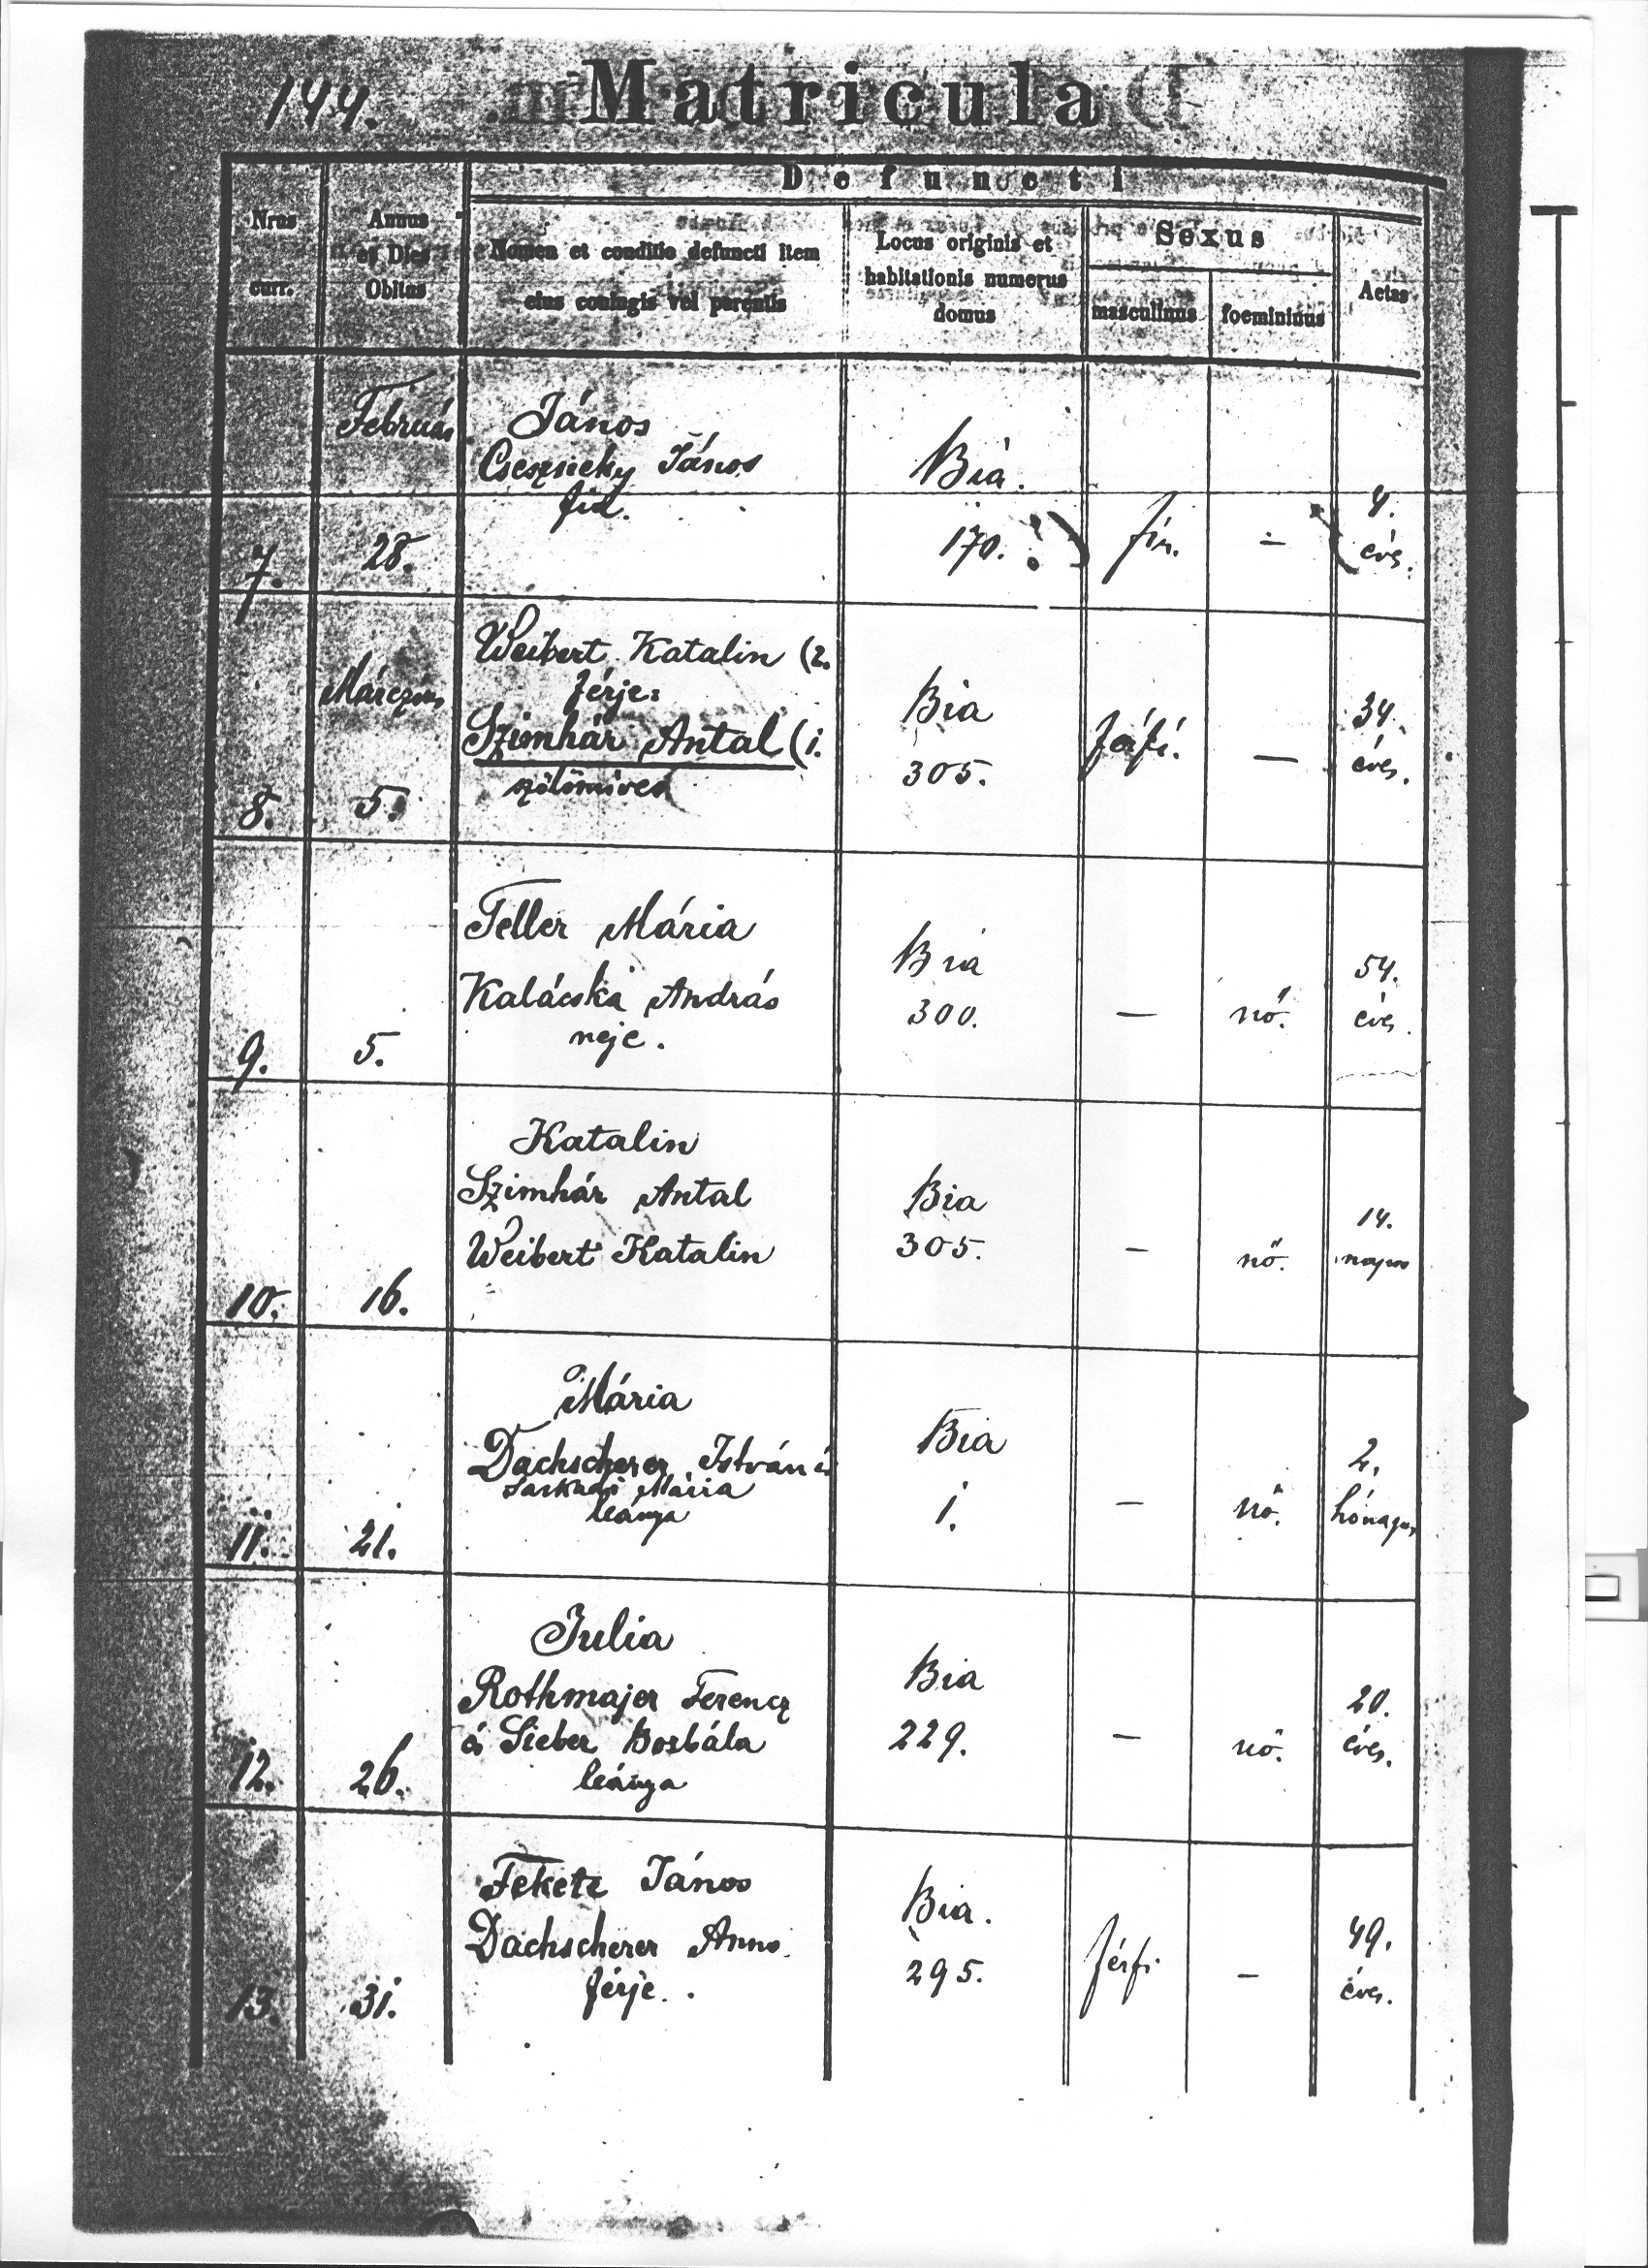 144.
Matricula
Defuncti
Nrus curr.
Annus et Dies Obitus
Nomen et conditio defuncti item
eius coniugis vel parentis
Locus originis et
habitationis numerus
domus
Sexus
masculinus
foemininus
Aetas
Február
János
Csesznieky János
fia.
Bia.
170.
4.
éves.
7.
28.
fiu.
—
Márczius
Weibert Katalin (2.
férje:
Szimhár Antal (1.
szőlőmives
Bia
305.
férfi.
—
34.
éves.
8.
5.
Teller Mária
Kalácska András
neje.
Bia
300.
—
nő.
54.
éves.
9.
5.
Katalin
Szimhár Antal
Weibert Katalin
Bia
305.
—
nő.
14.
napos
10.
16.
Mária
Dachscherer István és
Mária
leánya
Bia
1.
—
nő.
2.
hónapos
11.
21.
Julia
Rothmajer Ferencz
és Sieber Borbála
leánya
Bia
229.
—
nő.
20.
éves.
12.
26.
Fekete János
Dachscherer Anna
férje.
Bia.
295.
férfi
—
49.
éves.
13.
31.